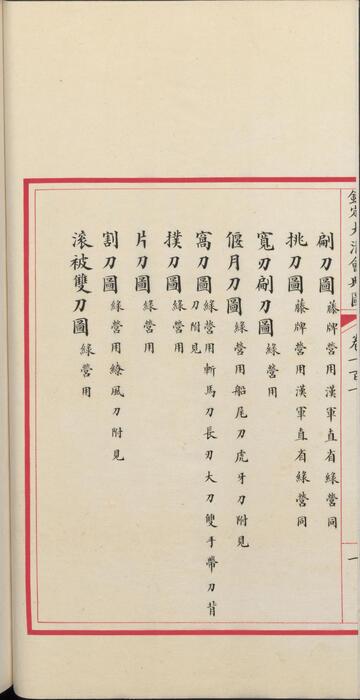 欽定大清會典圖
卷一百一
一
㓲刀圖藤牌營用漢軍直省綠營同
挑刀圖藤牌營用漢軍直省綠營同
寬刃㓲刀圖綠營用
偃月刀圖綠營用船尾刀虎牙刀附見
窩刀圖綠營用斬馬刀長刃大刀雙手帶刀背刀附見
撲刀圖綠營用
片刀圖綠營用
割刀圖綠營用繚風刀附見
滾被雙刀圖綠營用